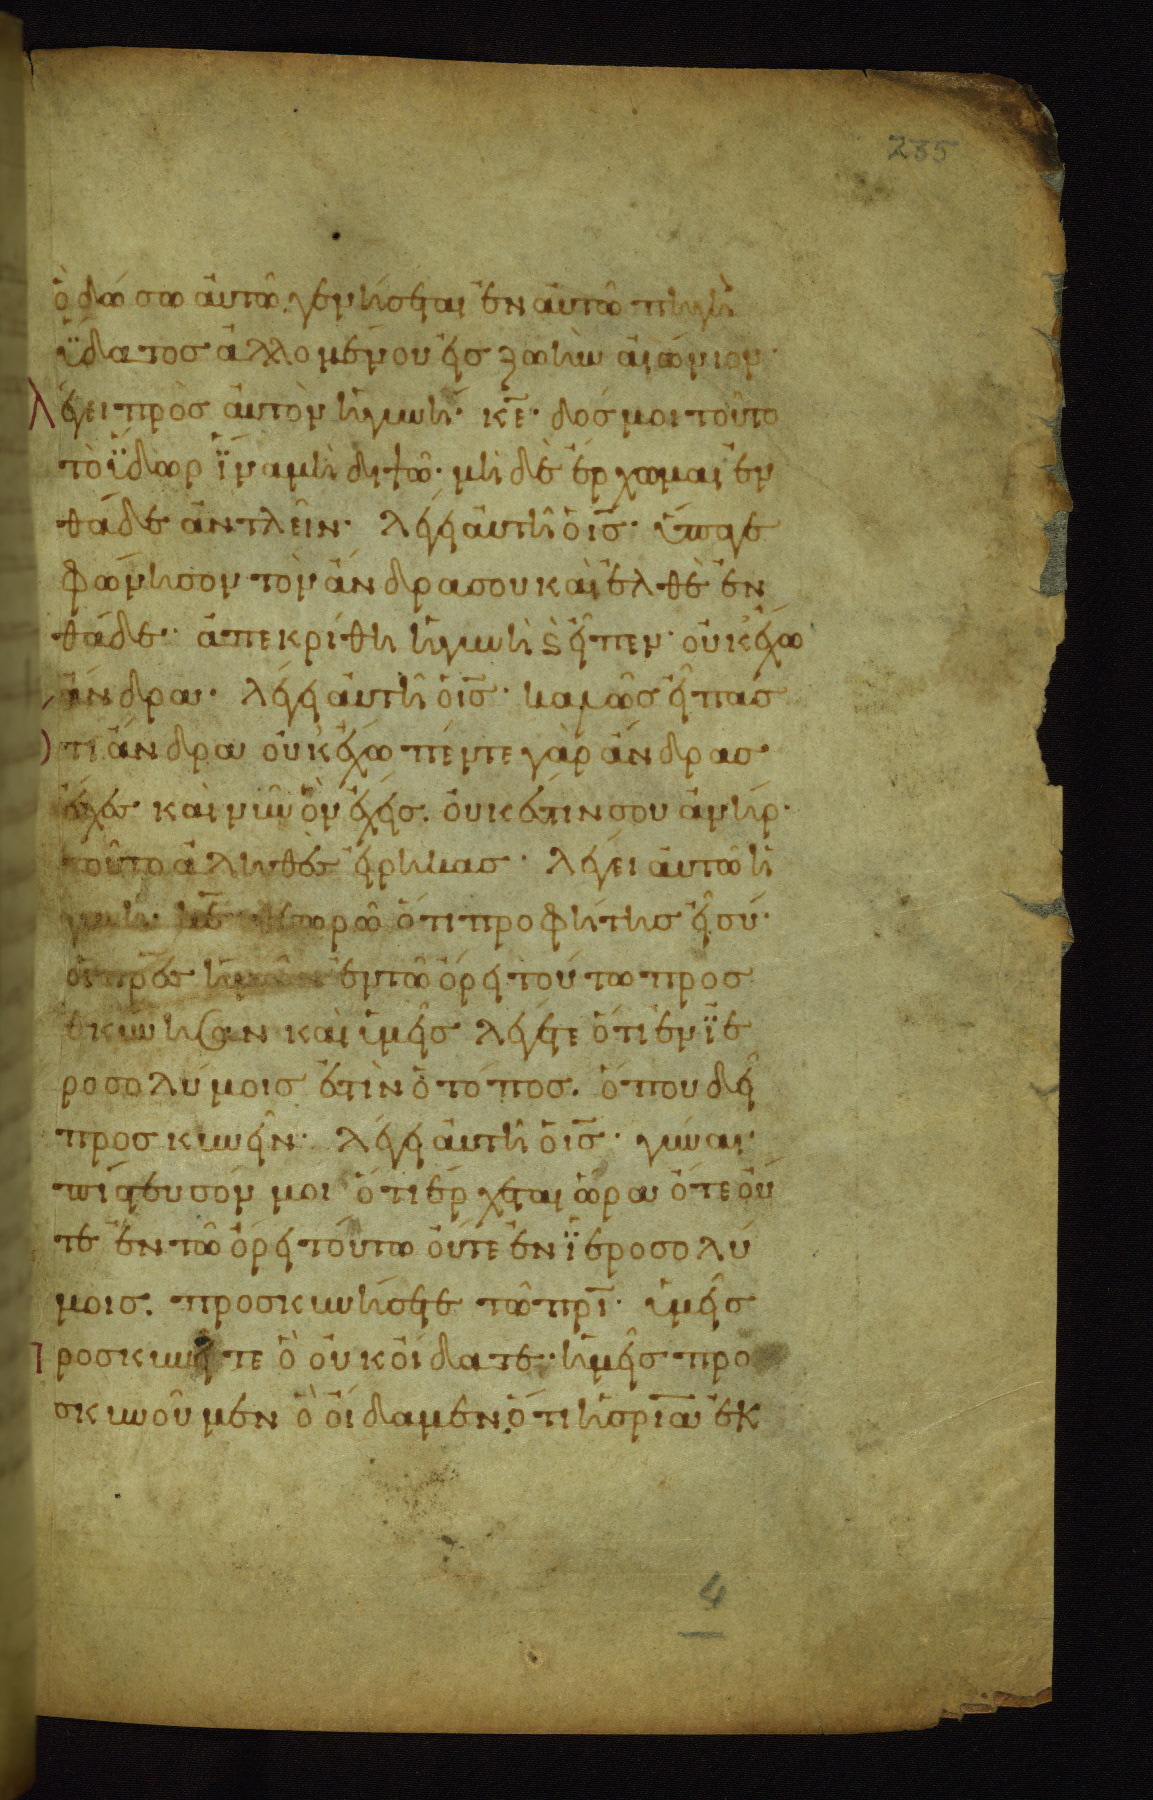 235
ὁ δώσω αὐτῶ. γενήσεται ἐν αὐτῶ πηγὴ
ὕδατος ἀλλομένου εἰς ζωὴν αἰώνιον·
λέγει πρὸς αὐτὸν ἡ γυνή· κε̅· δός μοι τοῦτο
τὸ ὕδωρ ἵνα μὴ διψῶ· μὴ δὲ ἔρχωμαι ἐν
θάδε ἀντλεῖν· λέγει αὐτῆ ὁ ις̅· ὕπαγε
φώνησον τὸν ἄνδρα σου καὶ ἐλθὲ ἐν
θάδε· ἀπεκρίθη ἡ γυνὴ ϗ εἶπεν· οὐκ ἔχω
ἄνδρα· λέγει αὐτῆ ὁ ις̅· καλῶς εἶπας
ὅτι ἄνδρα οὐκ ἔχω πέντε γὰρ ἄνδρας
ἔσχες καὶ νῦν ὃν ἔχεις. οὐκ ἔστιν σου ἀνήρ·
τοῦτο ἀληθὲς εἴρηκας· λέγει αὐτῶ ἡ
γυνή· κε̅ θεωρῶ ὅτι προφήτης εἶ σύ·
οἱ πρε̅ς ἡμῶν ἐν τῶ ὄρει τούτω προσ
εκύνησαν καὶ ὑμεῖς λέγετε ὅτι ἐν ϊε
ροσολύμοις ἐστὶν ὁ τόπος. ὅπου δεῖ
προσκυνεῖν· λέγει αὐτῆ ὁ ις̅· γύναι·
πίστευσόν μοι ὅτι ἔρχεται ὥρα ὅτε οὔ
τε ἐν τῶ ὄρει τούτω οὔτε ἐν ϊεροσολύ
μοις. προσκυνήσετε τῶ πρι̅· ὑμεῖς
προσκυνεῖτε ὃ οὐκ οἴδατε· ἡμεῖς προ
σκυνοῦμεν ὃ οἴδαμεν. ὅτι ἡ σρια̅ ἐκ
4